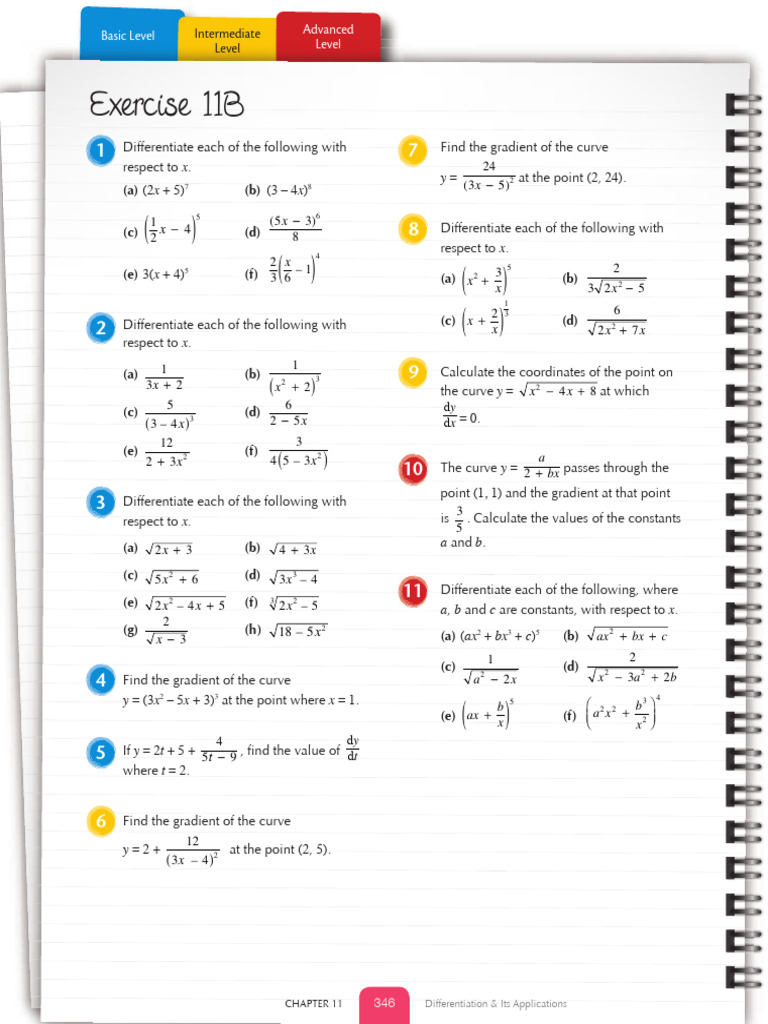 Basic Level
Intermediate
Level
Advanced
Level
Exercise 11B
1 Differentiate each of the following with
respect to x.
(a) (2x + 5)⁷ (b) (3 – 4x)⁸
(c) (1/2 x – 4)⁵ (d) (5x – 3)⁶/8
(e) 3(x + 4)⁵ (f) 2/3 (x/6 – 1)⁴
2 Differentiate each of the following with
respect to x.
(a) 1/(3x + 2) (b) 1/(x² + 2)³
(c) 5/(3 – 4x)³ (d) 6/(2 – 5x)
(e) 12/(2 + 3x²) (f) 3/(4(5 – 3x²))
3 Differentiate each of the following with
respect to x.
(a) √(2x + 3) (b) √(4 + 3x)
(c) √(5x² + 6) (d) √(3x³ – 4)
(e) √(2x² – 4x + 5) (f) ³√(2x² – 5)
(g) 2/√(x – 3) (h) √(18 – 5x²)
4 Find the gradient of the curve
y = (3x² – 5x + 3)³ at the point where x = 1.
5 If y = 2t + 5 + 4/(5t – 9), find the value of dy/dt
where t = 2.
6 Find the gradient of the curve
y = 2 + 12/(3x – 4)² at the point (2, 5).
7 Find the gradient of the curve
y = 24/(3x – 5)² at the point (2, 24).
8 Differentiate each of the following with
respect to x.
(a) (x² + 3/x)⁵ (b) 2/(3√(2x² – 5))
(c) (x + 2/x)^(1/3) (d) 6/√(2x² + 7x)
9 Calculate the coordinates of the point on
the curve y = √(x² – 4x + 8) at which
dy/dx = 0.
10 The curve y = a/(2 + bx) passes through the
point (1, 1) and the gradient at that point
is 3/5. Calculate the values of the constants
a and b.
11 Differentiate each of the following, where
a, b and c are constants, with respect to x.
(a) (ax² + bx³ + c)⁵ (b) √(ax² + bx + c)
(c) 1/√(a² – 2x) (d) 2/√(x² – 3a² + 2b)
(e) (ax + b/x)⁵ (f) (a²x² + b³/x²)⁴
CHAPTER 11 346 Differentiation & Its Applications